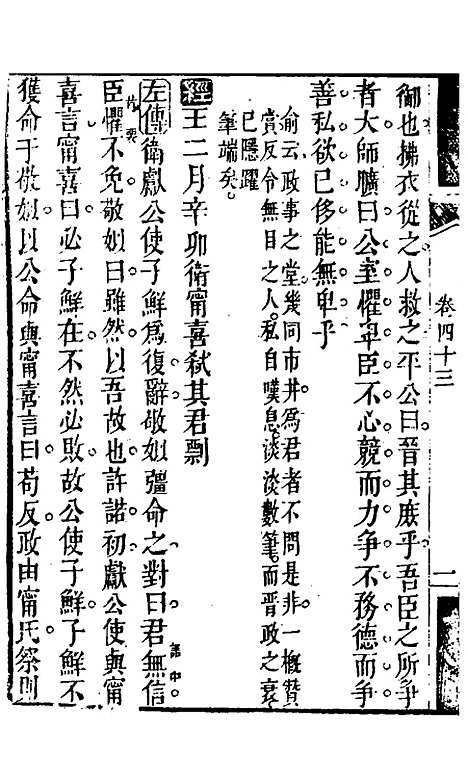 卷四十三
一
御也拂衣從之人救之平公曰晉其庶乎吾臣之所爭
者大師曠曰公室懼卑臣不心競而力爭不務德而爭
善私欲已侈能無卑乎
俞云政事之堂幾同市井爲君者不問是非一槪贊
賞反令無目之人私自嘆息淡淡數筆而晉政之衰
已隱躍
筆端矣
經王二月辛卯衛甯喜弒其君剽
左傳衛獻公使子鮮爲復辭敬姒彊命之對曰君無信
語中
臣懼不免敬姒曰雖然以吾故也許諾初獻公使與甯
喜言甯喜曰必子鮮在不然必敗故公使子鮮子鮮不
獲命于敬姒以公命與甯喜言曰苟反政由甯氏祭則